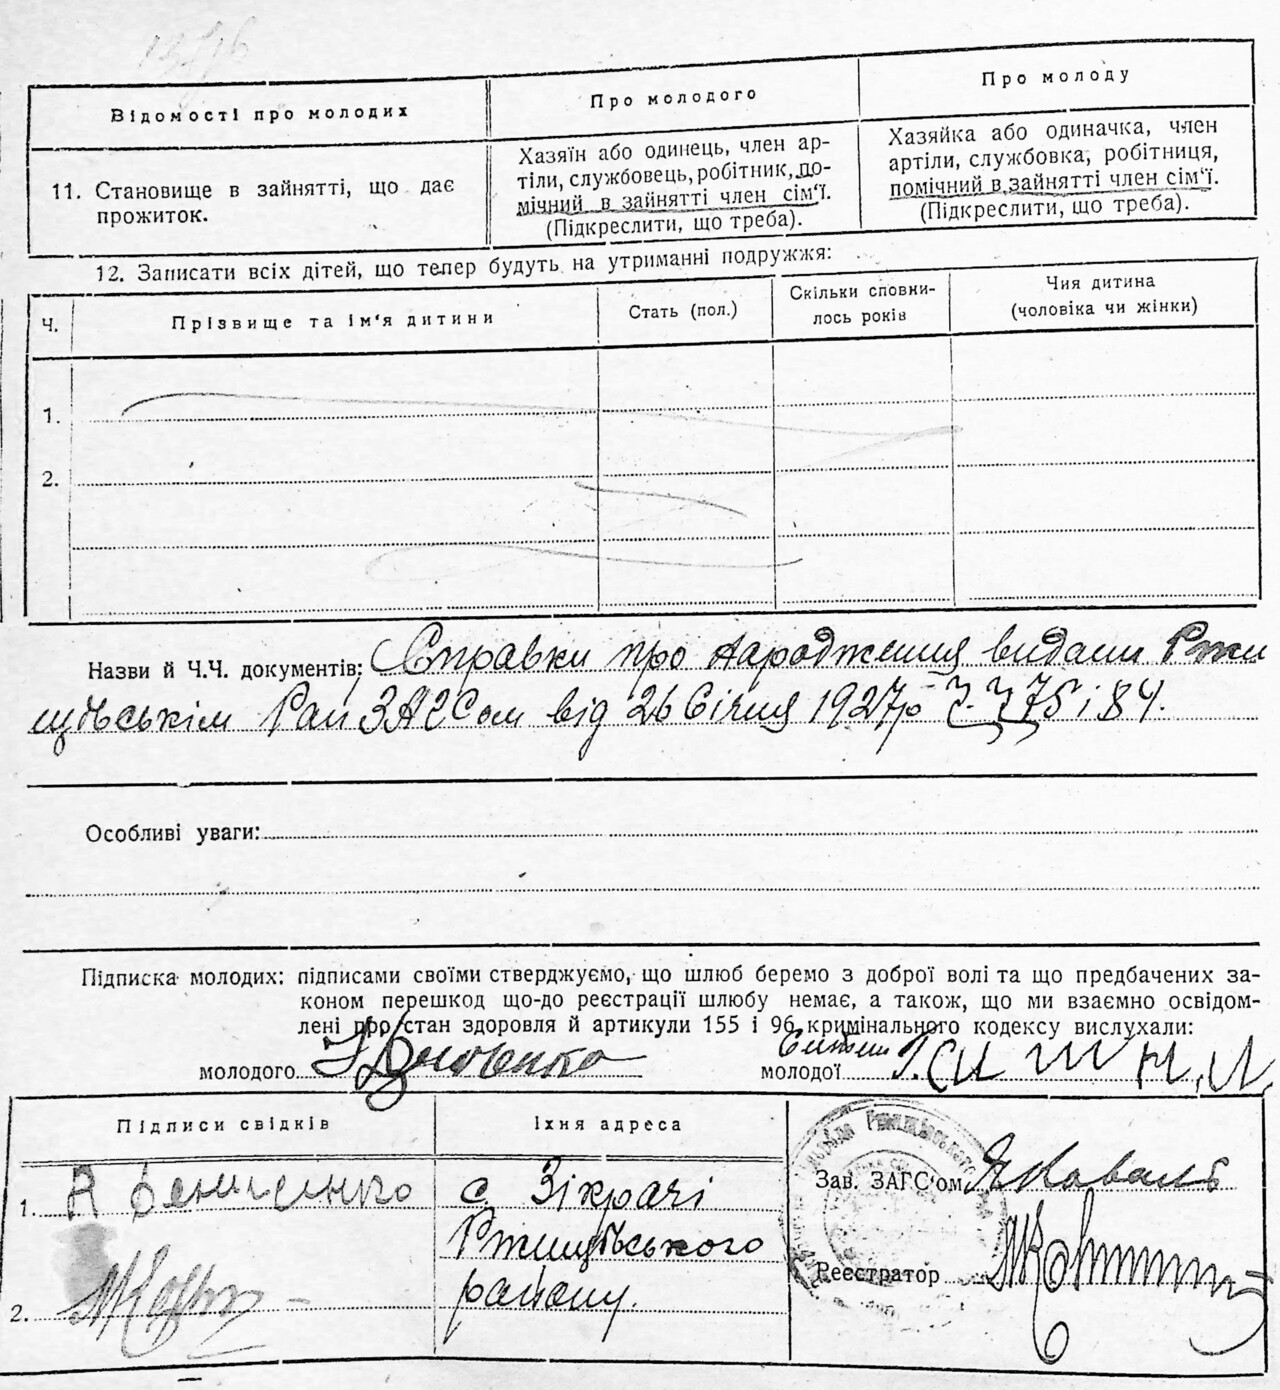 Відомості про молодих
Про молодого
Про молоду
11. Становище в зайнятті, що дає
прожиток.
Хазяїн або одинець, член ар-
тіли, службовець, робітник, по-
мічний в зайнятті член сім'ї.
(Підкреслити, що треба).
Хазяйка або одиначка, член
артіли, службовка, робітниця,
помічний в зайнятті член сім'ї.
(Підкреслити, що треба).
12. Записати всіх дітей, що тепер будуть на утриманні подружжя:
Ч.
Прізвище та ім'я дитини
Стать (пол.)
Скільки сповни-
лось років
Чия дитина
(чоловіка чи жінки)
1.
2.
Назви й Ч.Ч. документів: Справки про народження видани Ржи
щівськім РайЗАГСом від 26 Січня 1927р Ч. Ч 75 і 84.
Особливі уваги:
Підписка молодих: підписами своїми стверджуємо, що шлюб беремо з доброї волі та що предбачених за-
коном перешкод що-до реєстрації шлюбу немає, а також, що ми взаємно освідом-
лені про стан здоровля й артикули 155 і 96 кримінального кодексу вислухали:
молодого
молодої
Підписи свідків
Їхня адреса
1.
с Зікрачі
Ржищівського
району.
2.
Зав. ЗАГС'ом
Коваль
Реєстратор